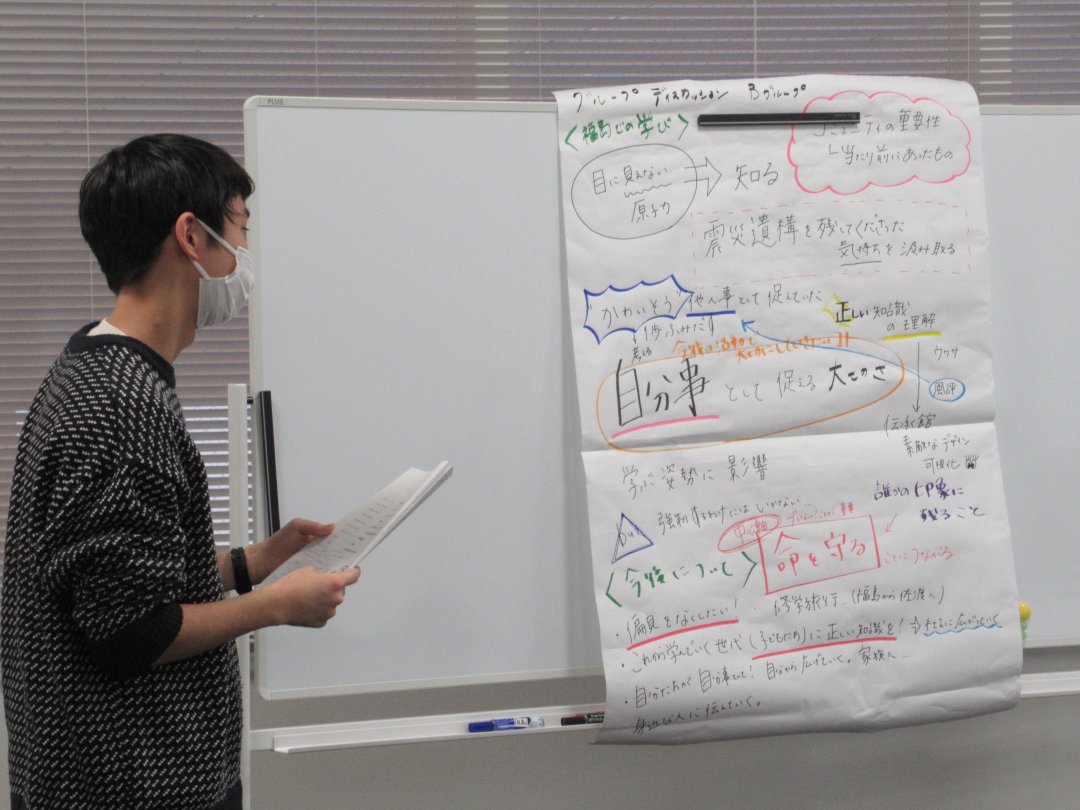 PLUS
グループ ディスカッション Bグループ
<福島での学び>
コミュニティの重要性
当たり前にあったもの
目に見えない
原子力
知る
震災遺構を残してくださった
気持ちを汲み取る
"かわいそう"
他人事として捉えていた
1歩ふみだす
正しい知識
の理解
ウワサ
風評
今後の活動で
自分事として捉える大切さ
伝承館
素敵なデザイン
可視化
学ぶ姿勢に影響
誰かの印象に
残ること
強制するわけにはいかない
but
命を守る
ことにつながる
<今後について>
・偏見をなくしたい! … 修学旅行…(福島から佐渡へ)
・これから学んでいく世代(子どもたち)に正しい知識を!
・自分たちが自分事として! 自分から広げていく。家族へ…
身近な人に伝えていく。